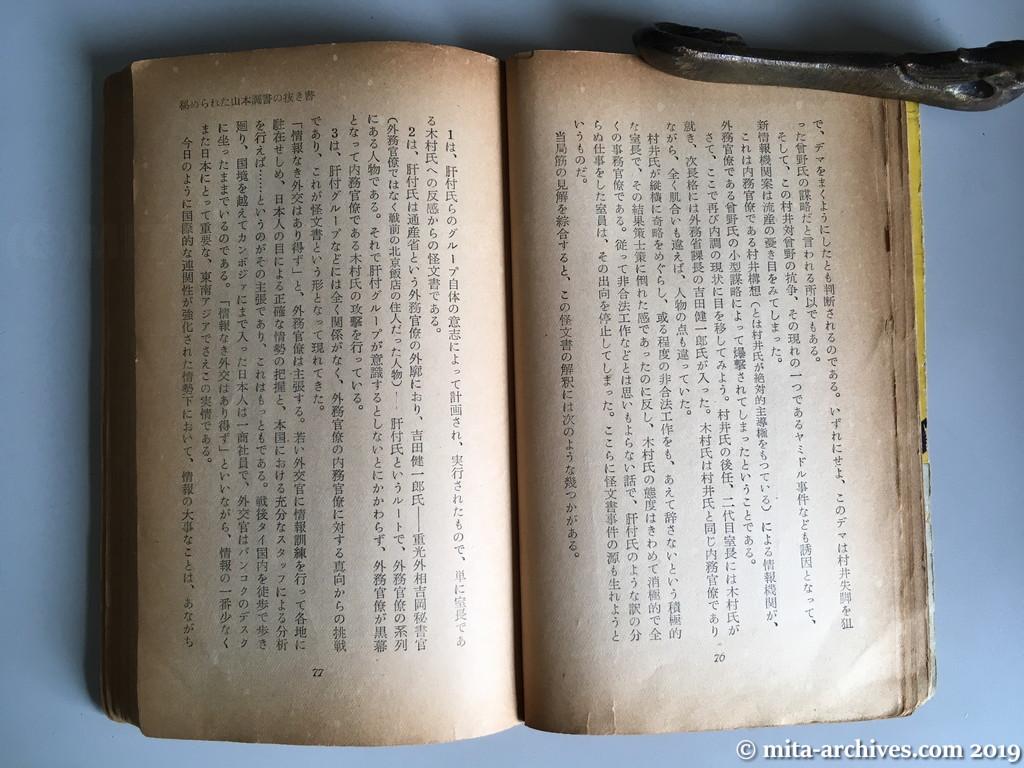 で、デマをまくようにしたとも判断されるのである。いずれにせよ、このデマは村井失脚を狙
った曾野氏の謀略だと言われる所以でもある。
そして、この村井対曾野の抗争、その現れの一つであるヤミドル事件なども誘因となって、
新情報機関案は流産の憂き目をみてしまった。
これは内務官僚である村井構想(とは村井氏が絶対的主導権をもつている)による情報機関が、
外務官僚である曾野氏の小型謀略によって爆撃されてしまったということである。
さて、ここで再び内調の現状に目を移してみよう。村井氏の後任、二代目室長には木村氏が
就き、次長格には外務省課長の吉田健一郎氏が入った。木村氏は村井氏と同じ内務官僚であり
ながら、全く肌合いも違えば、人物の点も違っていた。
村井氏が縦横に奇略をめぐらし、或る程度の非合法工作をも、あえて辞さないという積極的
な室長で、その結果策士策に倒れた感であったのに反し、木村氏の態度はきわめて消極的で全
くの事務官僚である。従って非合法工作などとは思いもよらない話で、肝付氏のような訳の分
らぬ仕事をした室員は、その出向を停止してしまった。ここらに怪文書事件の源も生れようと
いうものだ。
当局筋の見解を綜合すると、この怪文書の解釈には次のような幾つかがある。
76
秘められた山本調書の抜き書
1は、肝付氏らのグループ自体の意志によって計画され、実行されたもので、単に室長であ
る木村氏への反感からの怪文書である。
2は、肝付氏は通産省という外務官僚の外廓におり、吉田健一郎氏——重光外相吉岡秘書官
(外務官僚ではなく戦前の北京飯店の住人だった人物)——肝付氏というルートで、外務官僚の系列
にある人物である。それで肝付グループが意識するとしないとにかかわらず、外務官僚が黒幕
となって内務官僚である木村氏の攻撃を行っている。
3は、肝付グループなどには全く関係がなく、外務官僚の内務官僚に対する真向からの挑戦
であり、これが怪文書という形となって現れてきた。
「情報なき外交はあり得ず」と、外務官僚は主張する。若い外交官に情報訓練を行って各地に
駐在せしめ、日本人の目による正確な情勢の把握と、本国における充分なスタッフによる分析
を行えば……というのがその主張であり、これはもっともである。戦後タイ国内を徒歩で歩き
廻り、国境を越えてカンボジアにまで入った日本人は一商社員で、外交官はバンコクのデスク
に坐ったままでいるのである。「情報なき外交はあり得ず」といいながら、情報の一番少なく
また日本にとって重要な、東南アジアでさえこの実情である。
今日のように国際的な連関性が強化された情勢下において、情報の大事なことは、あながち
77
© mita-archives.com 2019